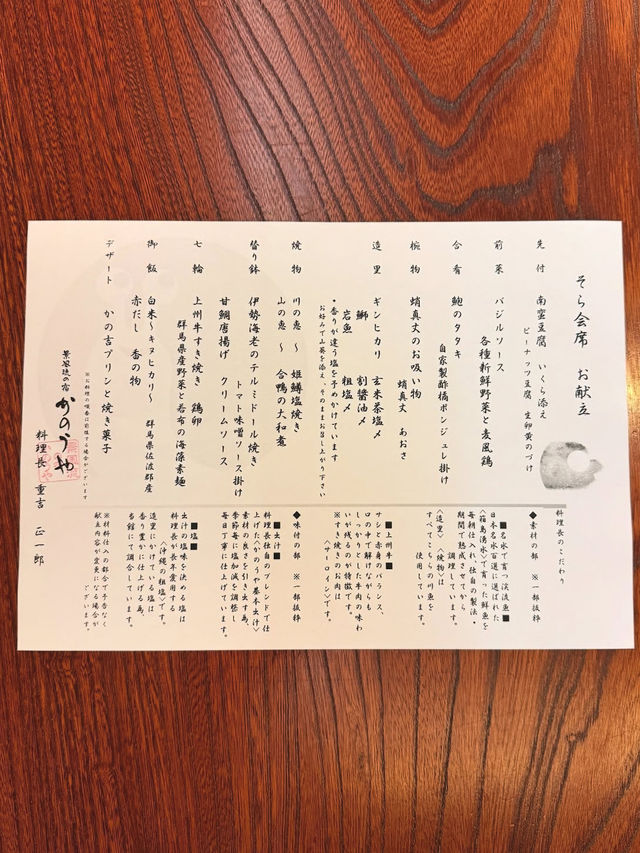 そら会席 お献立
先付 南蛮豆腐 いくら添え
ピーナッツ豆腐 生卵黄のづけ
前菜 バジルソース
各種新鮮野菜と麦風鶏
合肴 鮑のタタキ
自家製酢橘ポンジュレ掛け
椀物 蛸真丈のお吸い物
蛸真丈 あおさ
造里 ギンヒカリ 玄米茶塩〆
鰤 割醤油〆
岩魚 粗塩〆
・香りが違う塩を予めかけています
お好みで山葵を添え、そのままお召し上がり下さい
焼物 川の恵〜 姫鱒塩焼き
山の恵〜 合鴨の大和煮
替り鉢 伊勢海老のテルミドール焼き
トマト味噌ソース掛け
甘鯛唐揚げ クリームソース
七輪 上州牛すき焼き 鶏卵
群馬県産野菜と若布の海藻素麺
御飯 白米〜キヌヒカリ〜 群馬県佐波郡産
赤だし 香の物
デザート かの吉プリンと焼き菓子
※お料理の順番は前後する場合がございます
景風流の宿 かのうや
料理長 重吉 正一郎
料理長のこだわり
◆素材の部 ※一部抜粋
■名水で育つ渓流魚■
日本名水百選に選ばれた
〈箱島湧水〉で育った鮮魚を
毎朝仕入れ、独自の製法・
期間で熟成させてから
調理しています。
〈造里〉〈焼物〉は
すべてこちらの川魚を
使用しています。
■上州牛■
サシと赤身のバランス、
口の中で解けながらも
しっかりとした牛肉の味わ
いが残るのが特徴です。
※すき焼きのお肉は
〈サーロイン〉です。
◆味付の部 ※一部抜粋
■出汁■
料理長独自のブレンドで仕
上げた〈かのうや基本出汁〉
素材の良さを引き出す為、
季節毎に塩加減を調整し
毎日丁寧に仕上げています。
■塩■
出汁の塩味を決める塩は
料理長が長年愛用する
〈沖縄の粗塩〉です。
造里にかけている塩は
香り豊かに仕上げる為、
当館にて調合しています。
※材料仕入の都合で予告なく
献立内容が変更になる場合が
ございます。